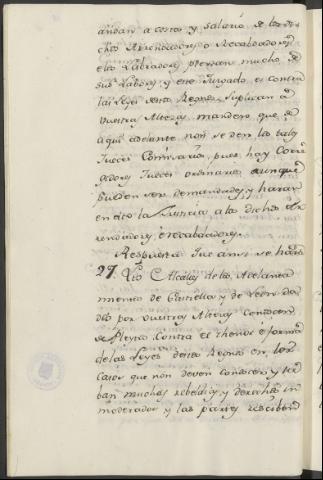 andan a costa y salario de los di-
chos Arrendadores o Recabdadores y
e los Labradores pierden mucho de
sus Labores y este Juzgado es contra
las Leyes destos Reynos, Suplican a
Vuestra Alteza, mandero que de
aqui adelante non se den los tales
Jueces Comisarios pues hay Corre
gidores Jueces ordinarios aunque
pueden ser demandados, y haran
en ello la Justicia a los dichos Ar
rendadores e recabdadores.
Respuesta Que ansi se hara
27. Los Alcaldes de los Adelanta
mientos de Castilla y de Leon da
dos por Vuestra Alteza conoscen
de Pleytos contra el thenor e forma
de las Leyes destos Reynos en los
casos que non deven conoscer y lle
ban muchas rebeldias y derechos in
moderados y las partes resciben